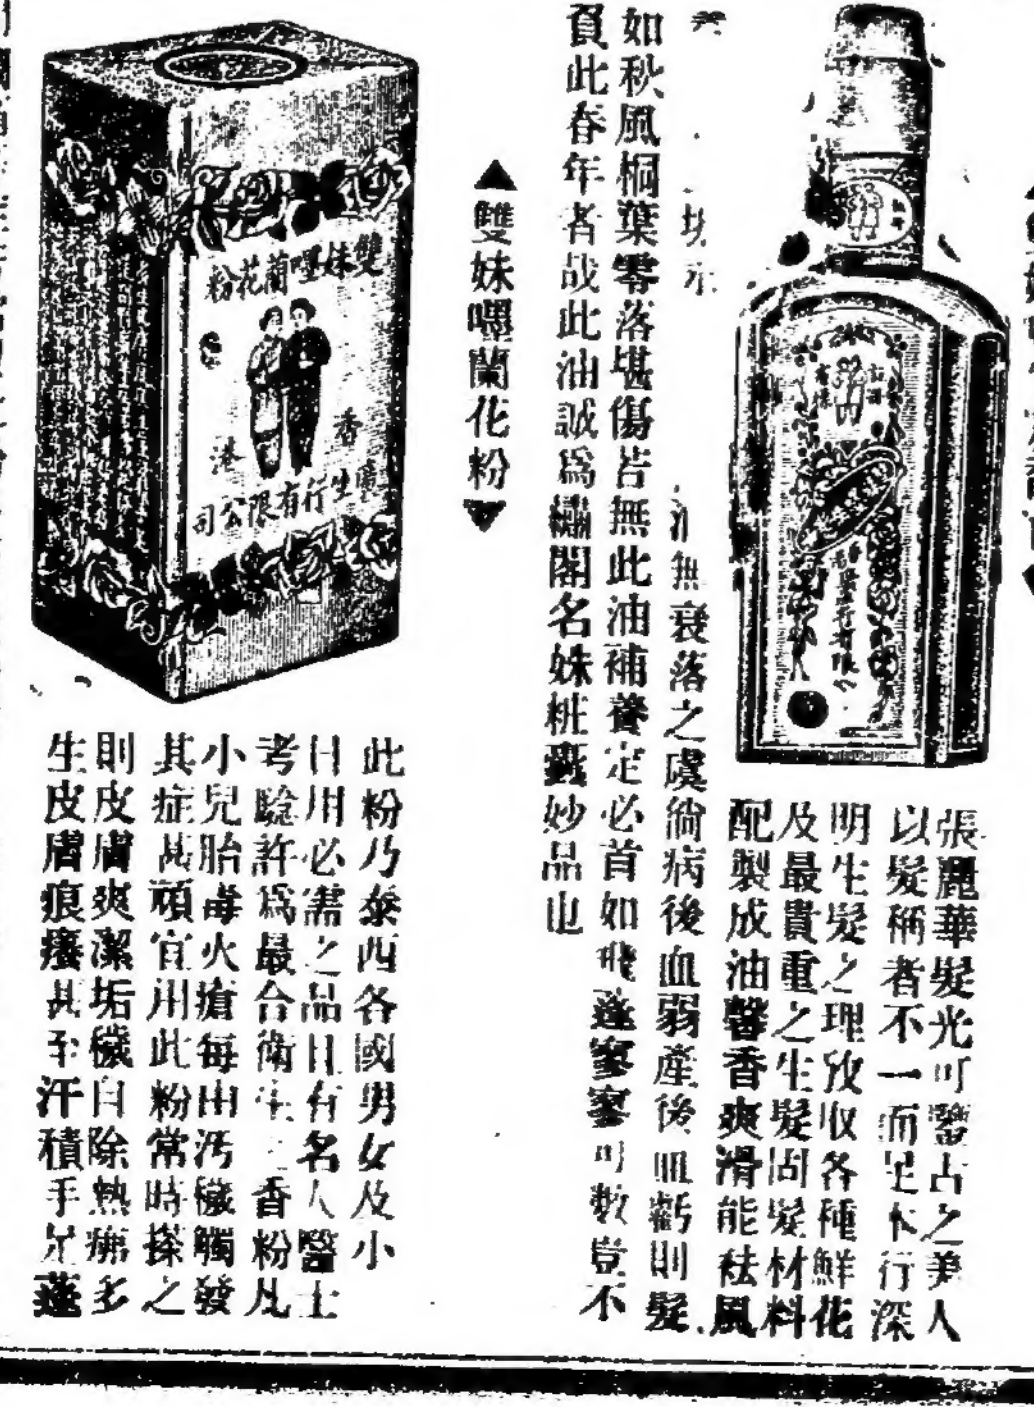 張麗華髮光可鑒古之美人
以髮稱者不一而足本行深
明生髮之理故收各種鮮花
及最貴重之生髮固髮材料
配製成油馨香爽滑能祛風
無衰落之虞倘病後血弱產後血虧則髮
如秋風桐葉零落堪傷若無此油補養定必首如飛蓬寥寥可數豈不
負此春年者哉此油誠為繡閣名姝粧奩妙品也
▲雙妹嘜蘭花粉▼
雙妹嘜蘭花粉
香港
廣生行有限公司
此粉乃泰西各國男女及小
日用必需之品日有名人醫士
考驗許為最合衛生之香粉凡
小兒胎毒火瘡每由污穢觸發
其症甚頑宜用此粉常時搽之
則皮膚爽潔垢穢自除熱痱多
生皮膚痕癢甚至汗積手足蓬